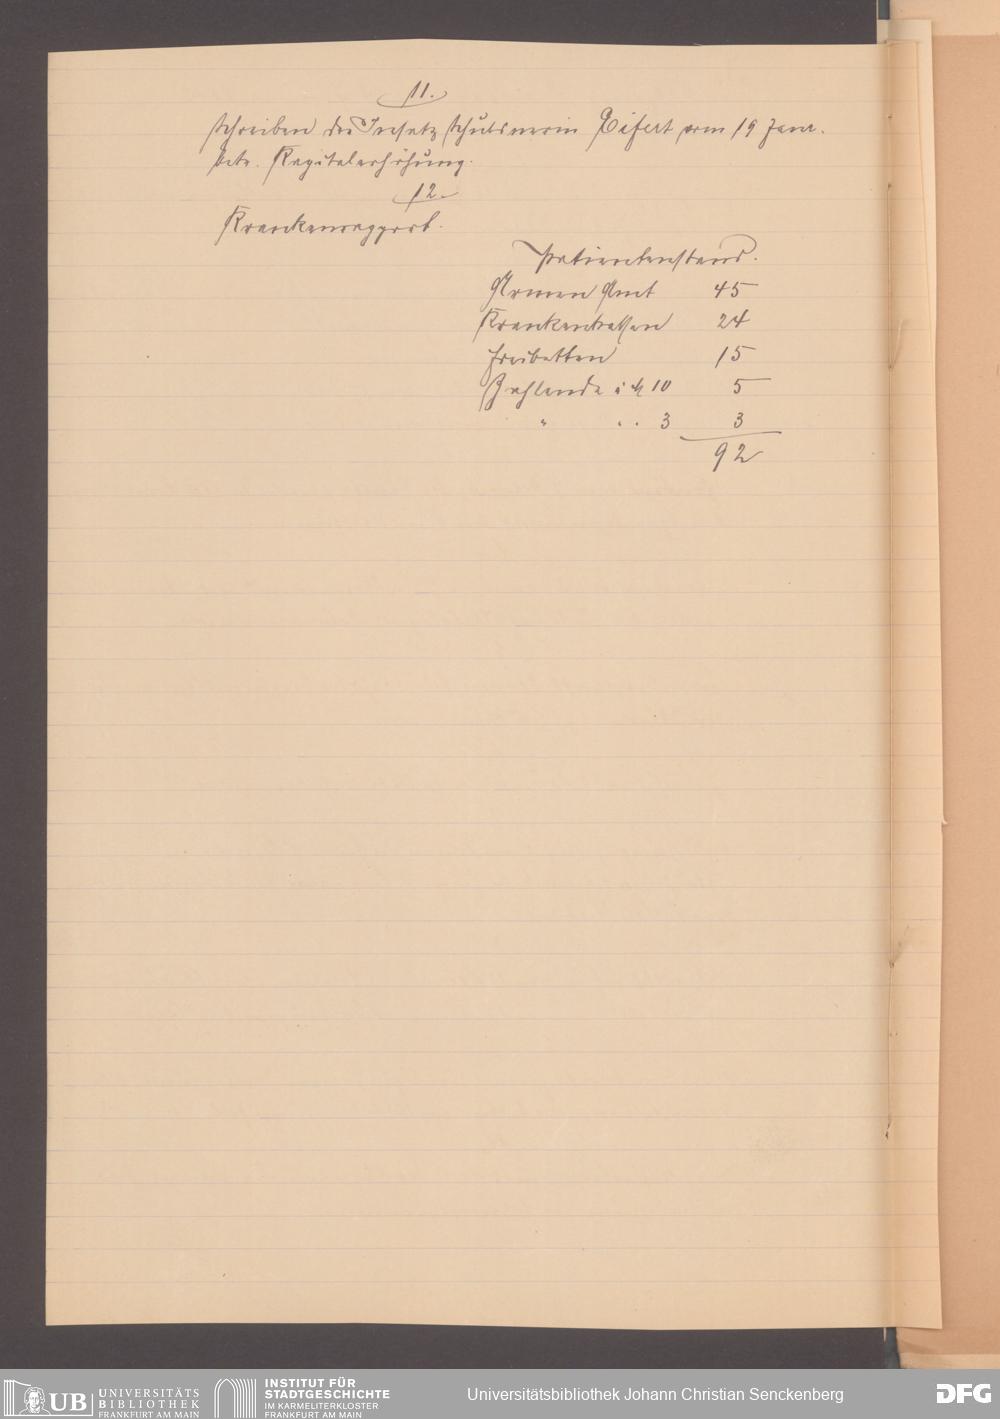 11.
Schreiben des Insatzschuldnerin Eifert vom 19 Janr.
betr. Kapitalerhöhung.
12.
Krankenrapport.
Patientenstand.
Armen Amt 45
Krankenkassen 24
Freibetten 15
Zahlende à M 10 5
" " . 3 3
92
UB UNIVERSITÄTS
BIBLIOTHEK
FRANKFURT AM MAIN
INSTITUT FÜR
STADTGESCHICHTE
IM KARMELITERKLOSTER
FRANKFURT AM MAIN
Universitätsbibliothek Johann Christian Senckenberg
DFG